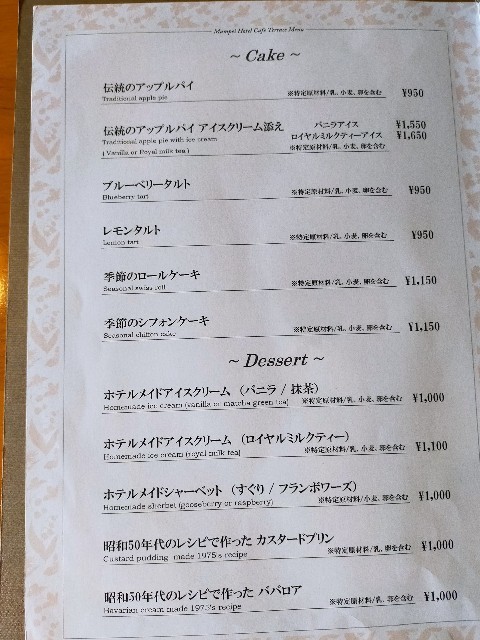 Mampei Hotel Cafe Terrace Menu
~ Cake ~
伝統のアップルパイ ※特定原材料/乳、小麦、卵を含む ¥950
Traditional apple pie
伝統のアップルパイ アイスクリーム添え バニラアイス ¥1,550
Traditional apple pie with ice cream ロイヤルミルクティーアイス ¥1,650
( Vanilla or Royal milk tea ) ※特定原材料/乳、小麦、卵を含む
ブルーベリータルト ※特定原材料/乳、小麦、卵を含む ¥950
Blueberry tart
レモンタルト ※特定原材料/乳、小麦、卵を含む ¥950
Lemon tart
季節のロールケーキ ※特定原材料/乳、小麦、卵を含む ¥1,150
Seasonal swiss roll
季節のシフォンケーキ ※特定原材料/乳、小麦、卵を含む ¥1,150
Seasonal chiffon cake
~ Dessert ~
ホテルメイドアイスクリーム (バニラ / 抹茶) ¥1,000
Homemade ice cream (vanilla or matcha green tea) ※特定原材料/乳、小麦、卵を含む
ホテルメイドアイスクリーム (ロイヤルミルクティー) ¥1,100
Homemade ice cream (royal milk tea) ※特定原材料/乳、小麦、卵を含む
ホテルメイドシャーベット (すぐり / フランボワーズ) ¥1,000
Homemade sherbet (gooseberry or raspberry) ※特定原材料/乳、小麦、卵を含む
昭和50年代のレシピで作った カスタードプリン ¥1,000
Custard pudding made 1975's recipe ※特定原材料/乳、卵を含む
昭和50年代のレシピで作った ババロア ¥1,000
Bavarian cream made 1975's recipe ※特定原材料/乳、卵を含む